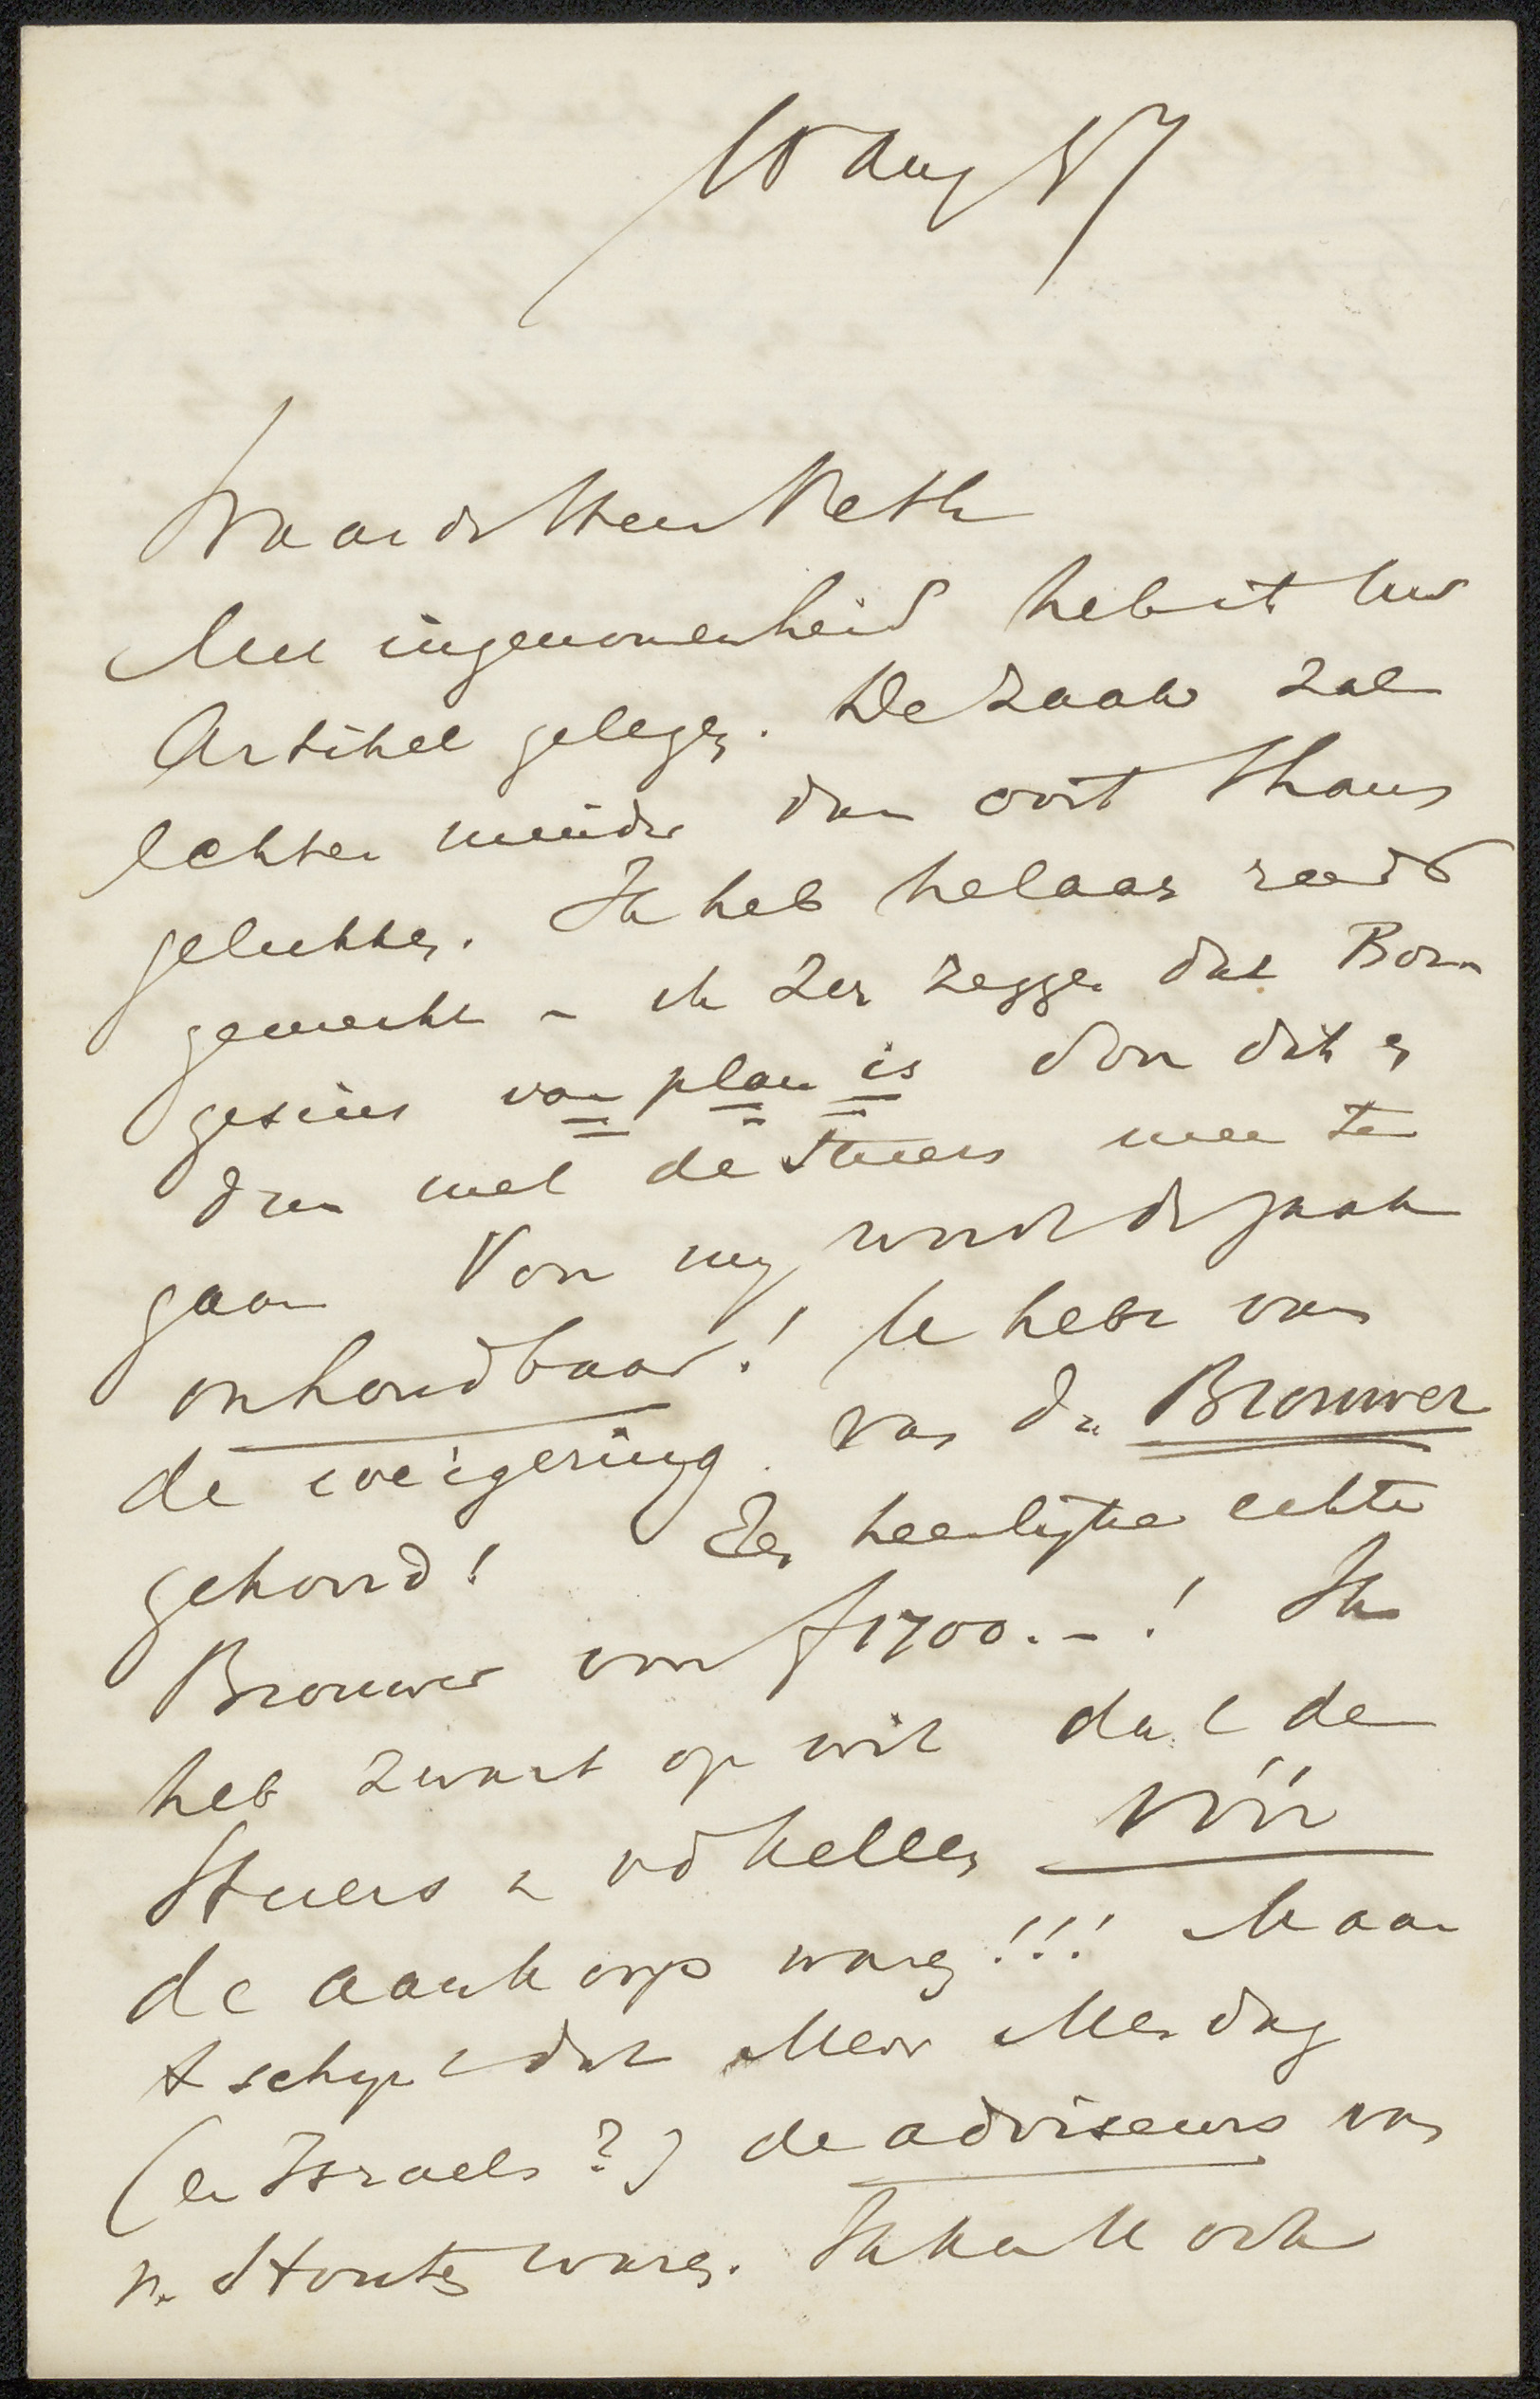 10 Aug 87
Waarde Heer Veth
Met ingenomenheid heb ik Uw
Artikel gelezen. De zaak zal
echter minder dan ooit thans
gelukken. Ik heb helaas reeds
gemerkt – ik zeg dat
geszins van plan is
met de Stuers mee te
gaan Voor mij wordt de zaak
onhoudbaar! U hebt van
de weigering van den Brouwer
gehoord! Een heerlijke echte
Brouwer voor f1700.-! Ik
heb zwart op wit dat de
Stuers & vd Kellen vóór
de aankoop waren!!! Maar
t schijnt dat Mevr Mesdag
(en Israels?) de adviseurs van
waren. Ik kan U ook